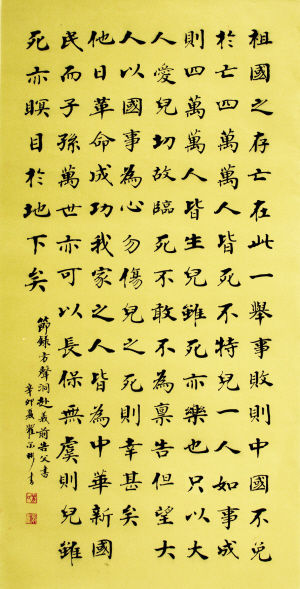 祖國之存亡在此一舉事敗則中國不免
於亡四萬萬人皆死不特兒一人如事成
則四萬萬人皆生兒雖死亦樂也只以大
人愛兒切故臨死不敢不為稟告但望大
人以國事為心勿傷兒之死則幸甚矣
他日革命成功我家之人皆為中華新國
民而子孫萬世亦可以長保無虞則兒雖
死亦瞑目於地下矣
節錄方聲洞赴義前告父書
辛卯夏 書